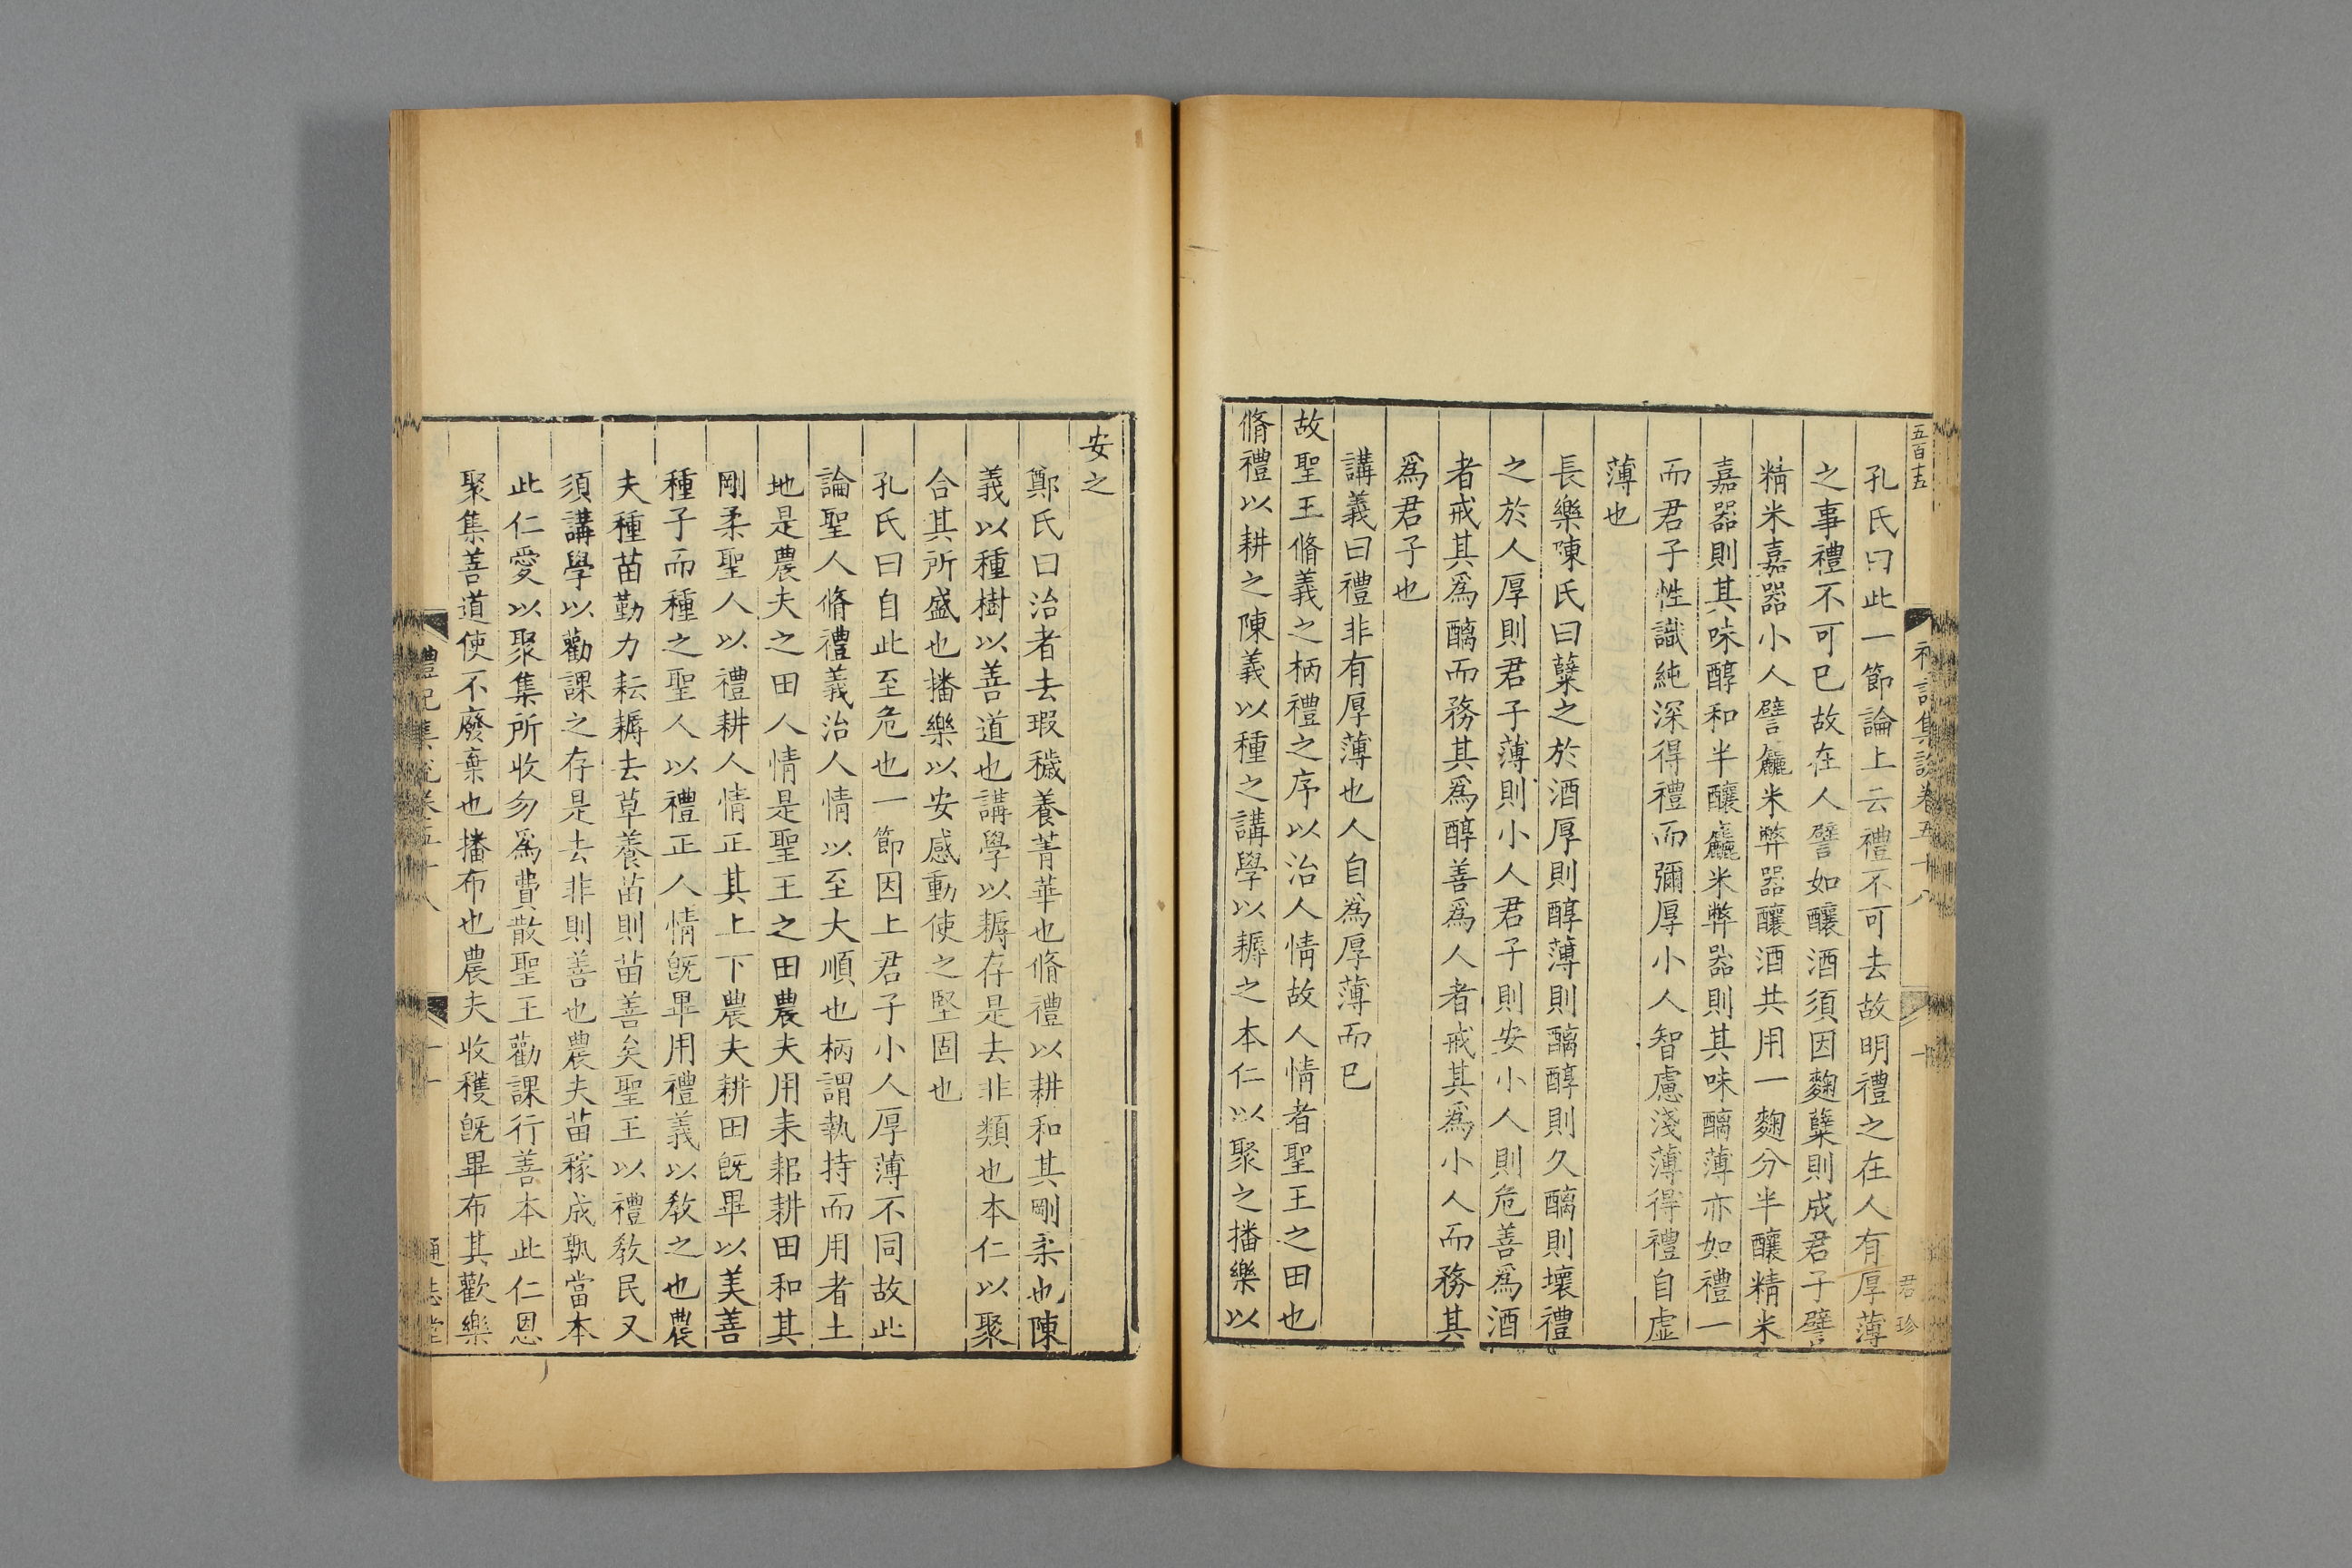 五百十五
禮記集說卷五十八
十
君珍
孔氏曰此一節論上云禮不可去故明禮之在人有厚薄
之事禮不可已故在人譬如釀酒須因麴糱則成君子譬
精米嘉器小人譬麤米弊器釀酒共用一麴分半釀精米
嘉器則其味醇和半釀麤米弊器則其味醨薄亦如禮一
而君子性識純深得禮而彌厚小人智慮淺薄得禮自虛
薄也
長樂陳氏曰糱之於酒厚則醇薄則醨醇則久醨則壞禮
之於人厚則君子薄則小人君子則安小人則危善爲酒
者戒其爲醨而務其爲醇善爲人者戒其爲小人而務其
爲君子也
講義曰禮非有厚薄也人自爲厚薄而已
故聖王脩義之柄禮之序以治人情故人情者聖王之田也
脩禮以耕之陳義以種之講學以耨之本仁以聚之播樂以
安之
鄭氏曰治者去瑕穢養菁華也脩禮以耕和其剛柔也陳
義以種樹以善道也講學以耨存是去非類也本仁以聚
合其所盛也播樂以安感動使之堅固也
孔氏曰自此至危也一節因上君子小人厚薄不同故此
論聖人脩禮義治人情以至大順也柄謂執持而用者土
地是農夫之田人情是聖王之田農夫用耒耜耕田和其
剛柔聖人以禮耕人情正其上下農夫耕田旣畢以美善
種子而種之聖人以禮正人情旣畢用禮義以敎之也農
夫種苗勤力耘耨去草養苗則苗善矣聖王以禮敎民又
須講學以勸課之存是去非則善也農夫苗稼成孰當本
此仁愛以聚集所收勿爲費散聖王勸課行善本此仁恩
聚集善道使不廢棄也播布也農夫收穫旣畢布其歡樂
禮記集說卷五十八
十一
通志堂